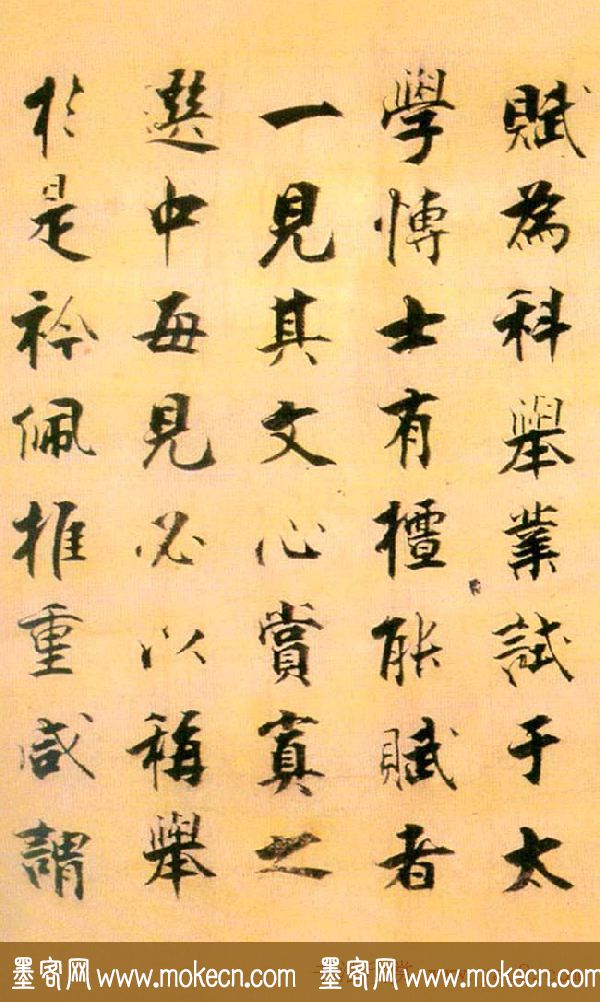 賦為科舉業試于太
學博士有擅能賦者
一見其文心賞寘之
選中每見必以稱舉
於是衿佩推重咸謂
墨客网 www.mokecn.com 墨客网 www.mokecn.com